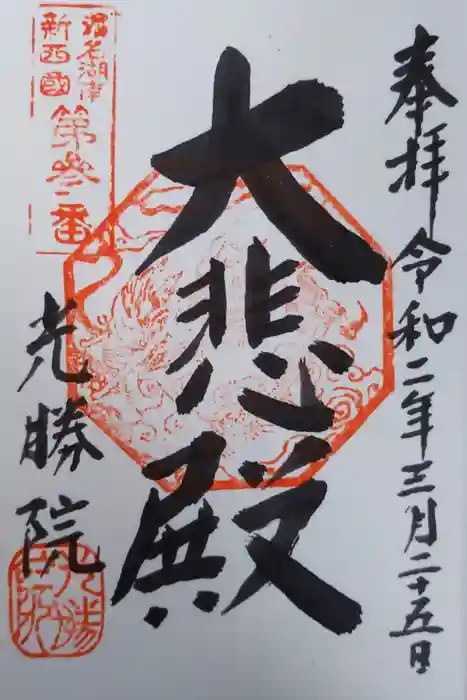 奉拝 令和二年三月二十五日
大悲殿
濱名湖岸
新西國
第参二番
光勝院